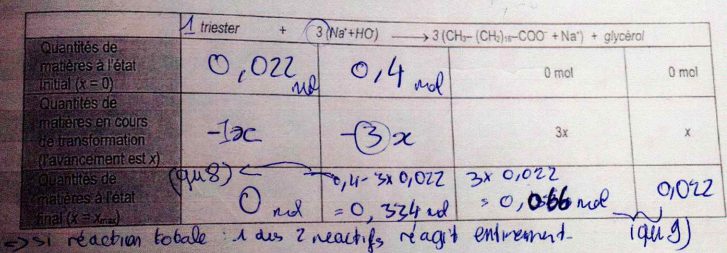 1 triester + 3 (Na⁺+HO⁻) ⟶ 3 (CH₃– (CH₂)₁₆–COO⁻ + Na⁺) + glycérol
Quantités de matières à l'état initial (x = 0) 0,022 mol 0,4 mol 0 mol 0 mol
Quantités de matières en cours de transformation (l'avancement est x) -1x -3x 3x x
Quantités de matières à l'état final (x = xmax) (qu 8) 0 mol 0,4 - 3x 0,022 = 0,334 mol 3x 0,022 = 0,066 mol 0,022 (qu 9)
=> si réaction totale : 1 des 2 réactifs réagit entièrement.